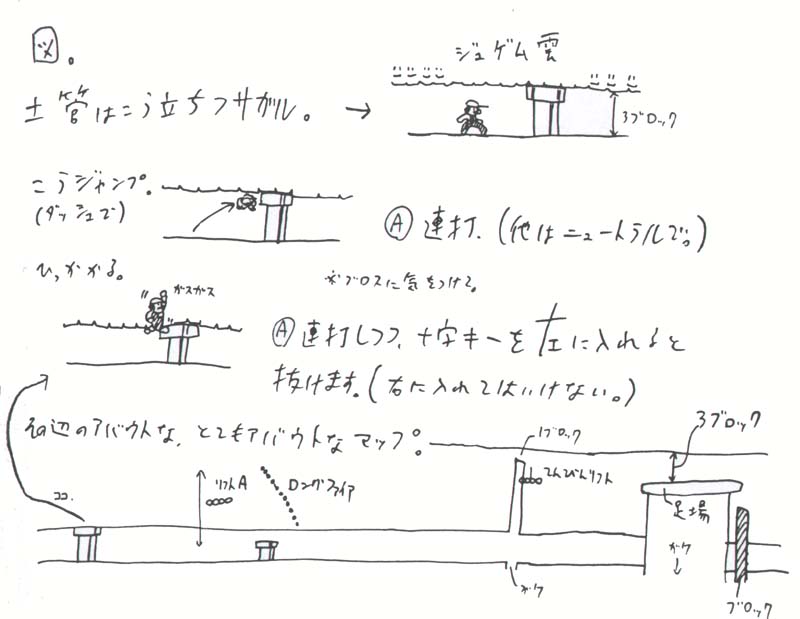 図。
ジュゲム雲
土管はこう立ちフサガル。→
3ブロック
こうジャンプ。
(ダッシュで)
Ⓐ連打、(他はニュートラルで。)
ひっかかる。
※ブロスに気をつける。
ガスガス
Ⓐ連打しつつ、十字キーを左に入れると
抜けます。(右に入れてはいけない。)
その辺のアバウトな、とてもアバウトなマップ。
1ブロック
3ブロック
ココ。
リフトA
ロングファイア
てんびんリフト
足場
ガケ
↓
ガケ
ブロック